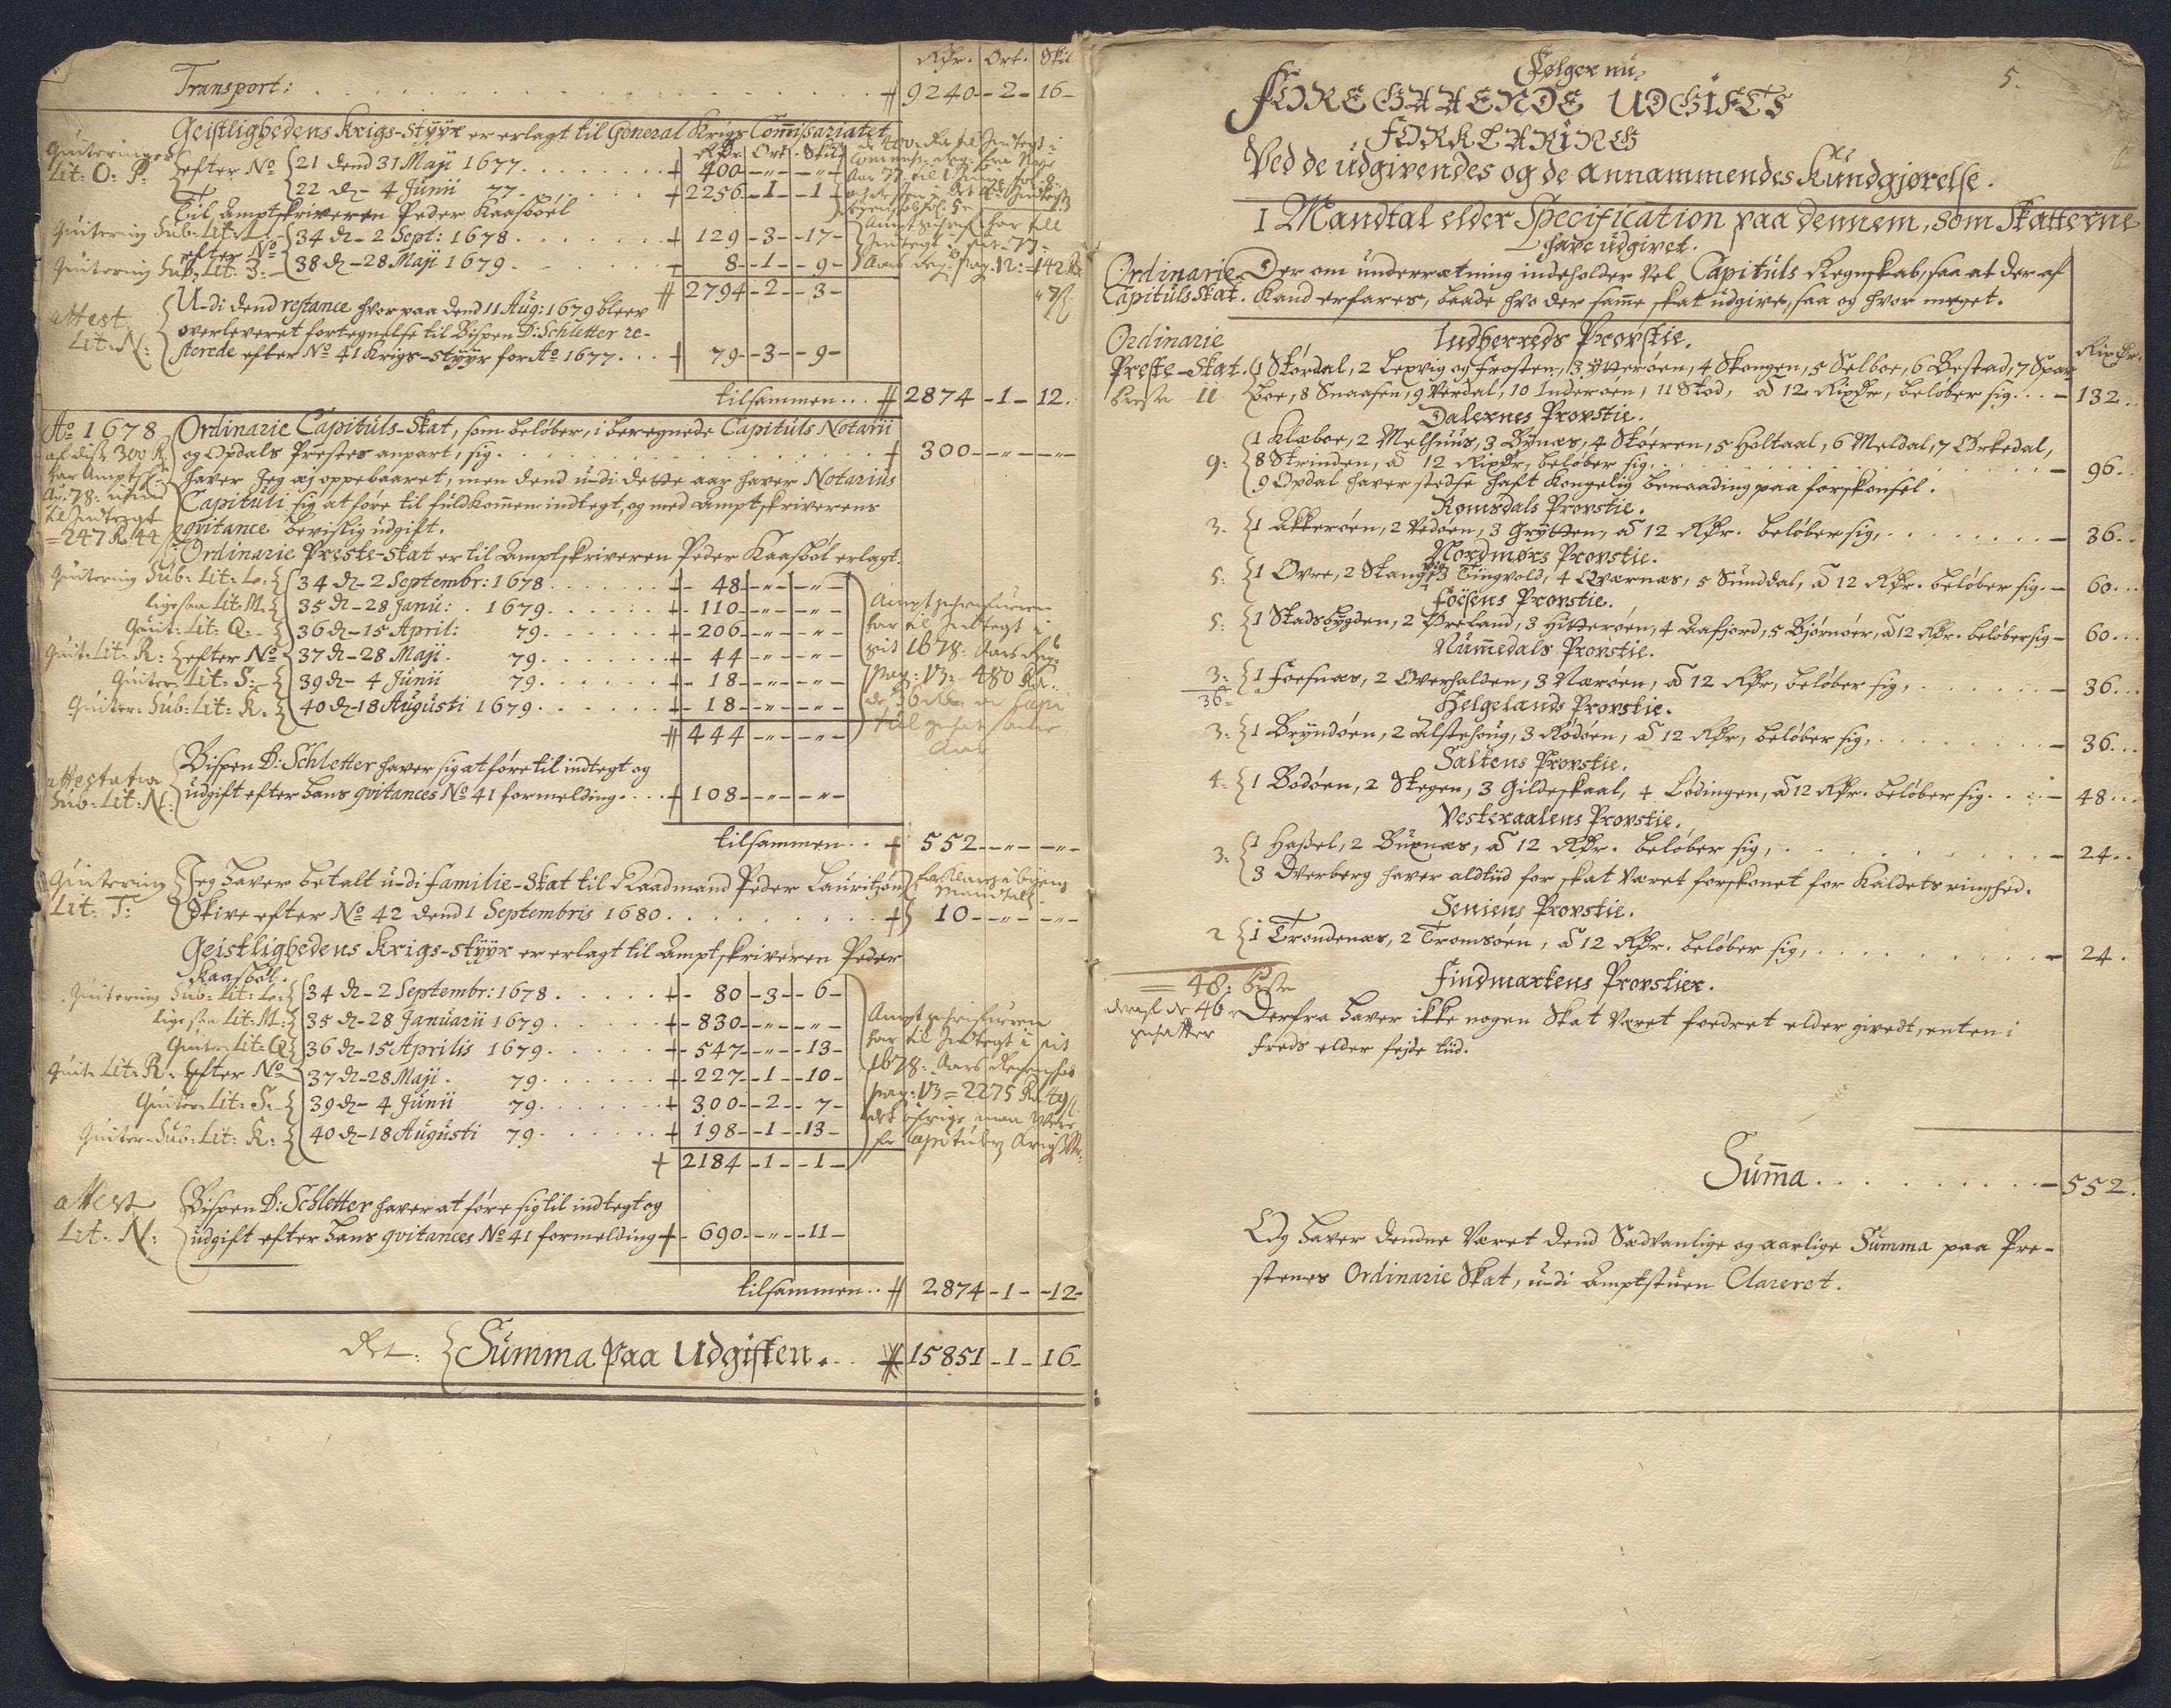 Rdr. Ort. Skil
Transport: 9240 - 2 - 16 -
Geistlighedens Krigs-Styyr er erlagt til General Krigs Com̄issariatet
Rdr. Ort. Skil
Quiteringer
Lit: O: P: efter No 21 dend 31 Maji 1677. 400 - " - " -
22 d - 4 Junii 77. 2256 - 1 - 1
Til Amptskriveren Peder Kaasbøel
Quitering Sub: Lit: L: 34 d - 2 Sept: 1678. 129 - 3 - 17 -
efter No
Quitering Sub: Lit: S: 38 d - 28 Maji 1679. 8 - 1 - 9 -
2794 - 2 - 3 -
attest
Lit: N: U-di dend restance hvor paa dend 11 Aug: 1679 bleev
overleveret fortegnelse til Bispen D: Schletter re-
sterede efter No 41 Krigs-styyr for Ao 1677. 79 - 3 - 9 -
tilsammen. 2874 - 1 - 12.
Ao 1678 Ordinarie Capituls-Skat, som beløber, i beregnede Capituls Notarii
og Opdals Prestes anpart, sig. 300 - " - " -
haver Jeg ej oppebaaret, men dend u-di dette aar haver Notarius
Capituli sig at føre til fuldkom̄en indtegt, og med Amptskriverens
qvitance bevislig udgift.
Ordinarie Preste-Skat er til Amptskriveren Peder Kaasbøl erlagt.
Quitering Sub: Lit: L: 34 d - 2 Septembr: 1678. 48 - " - " -
lige saa Lit: M: 35 d - 28 Janu: 1679. 110 - " - " -
Quit: Lit: Q: 36 d - 15 April: 79. 206 - " - " -
Quit: Lit: R: efter No 37 d - 28 Maji. 79. 44 - " - " -
Quiter: Lit: S: 39 d - 4 Junii 79. 18 - " - " -
Quiter: Sub: Lit: K: 40 d - 18 Augusti 1679. 18 - " - " -
444 - " - " -
Amptschrifueren
har til Indtegt i
sit 1678: Aars
pag: 13: 480
attestatia
Sub: Lit: N: Bispen D: Schletter haver sig at føre til indtegt og
udgift efter hans qvitances No 41 formelding. 108 - " - " -
tilsammen. 552 - " - " -
Quitering
Lit: T: Jeg haver betalt u-di familie-Skat til Raadmand Peder Lauritsøn
Skive efter No 42 dend 1 Septembris 1680. 10 - " - " -
Geistlighedens Krigs-styyr er erlagt til Amptskriveren Peder
Kaasbøl.
Quitering Sub: Lit: L: 34 d - 2 Septembr: 1678. 80 - 3 - 6 -
lige saa Lit: M: 35 d - 28 Januarii 1679. 830 - " - " -
Quit: Lit: Q: 36 d - 15 Aprilis 1679. 547 - " - 13 -
Quit: Lit: R: Efter No 37 d - 28 Maji. 79. 227 - 1 - 10 -
Quiter: Lit: S: 39 d - 4 Junii 79. 300 - 2 - 7 -
Quiter: Sub: Lit: K: 40 d - 18 Augusti 79. 198 - 1 - 13 -
2184 - 1 - 1 -
Amptschrifueren
har til Indtegt i sit
1678: Aars
pag: 13 = 2275
attest
Lit: N: Bispen D: Schletter haver at føre sig til indtegt og
udgift efter hans qvitances No 41 formelding 690 - " - 11 -
tilsammen. 2874 - 1 - 12 -
Summa paa Udgiften. 15851 - 1 - 16 -
5.
Følger nu
FOREGAAENDE UDGIFTS
FORKLARING
Ved de udgivendes og de annammendes Kundgjørelse.
I Mandtal elder Specification paa dennem, som Skatterne
have udgivet.
Ordinarie
Capituls Skat. Der om underrætning indeholder vel Capituls Regnskab, saa at der af
Kand erfares, baade hvo der sam̄e skat udgiver, saa og hvor meget.
Ordinarie
Preste-Skat. Indherreds Provstie. Rixdr.
11 1 Størdal, 2 Lexvig og Frosten, 3 Ytterøen, 4 Skongen, 5 Selboe, 6 Bestad, 7 Spar
boe, 8 Snaasen, 9 Verdal, 10 Inderøen, 11 Stod, a 12 Rixdr, beløber sig. 132.
Dalernes Provstie.
9: 1 Klæboe, 2 Melhuus, 3 Bynæs, 4 Støeren, 5 Holtaal, 6 Meldal, 7 Orkedal,
8 Strinden, a 12 Rixdr, beløber sig. 96.
9 Opdal haver stedse haft Kongelig benaading paa forskonsel.
Romsdals Provstie.
3. 1 Akkerøen, 2 Vedøen, 3 Grytten, a 12 Rdr. beløber sig, 36.
Nordmørs Provstie.
5: 1 Ovre, 2 Stangvig 3 Tingvold, 4 Qværnæs, 5 Sunddal, a 12 Rdr. beløber sig. 60.
Foesens Provstie.
5: 1 Stadsbygden, 2 Øreland, 3 Hitterøen, 4 Aafjord, 5 Bjørnøer, a 12 Rdr. beløber sig 60.
Num̄edals Provstie.
3: 1 Foesnæs, 2 Overhalden, 3 Nærøen, a 12 Rdr, beløber sig, 36.
36 =
Helgelands Provstie.
3: 1 Brynøen, 2 Alstehoug, 3 Rødøen, a 12 Rdr, beløber sig, 36.
Saltens Provstie.
4: 1 Bodøen, 2 Stegen, 3 Gildeskaal, 4 Lødingen, a 12 Rdr. beløber sig. 48.
Vesteraalens Provstie.
3: 1 Hassel, 2 Buxnæs, a 12 Rdr. beløber sig, 24.
3 Dverberg haver aldtiid for skat været forskonet for Kaldets ringhed.
Seniens Provstie.
2 1 Trondenæs, 2 Tromsøen, a 12 Rdr. beløber sig, 24.
= 48:
Findmarkens Provstier.
46
Derfra haver ikke nogen Skat været fordret elder givedt, enten i
freds elder fejde tiid.
Sum̄a. 552.
Og haver dendne været dend Sædvanlige og aarlige Summa paa Pre-
stenes Ordinarie Skat, u-di Amptstuen Clareret.